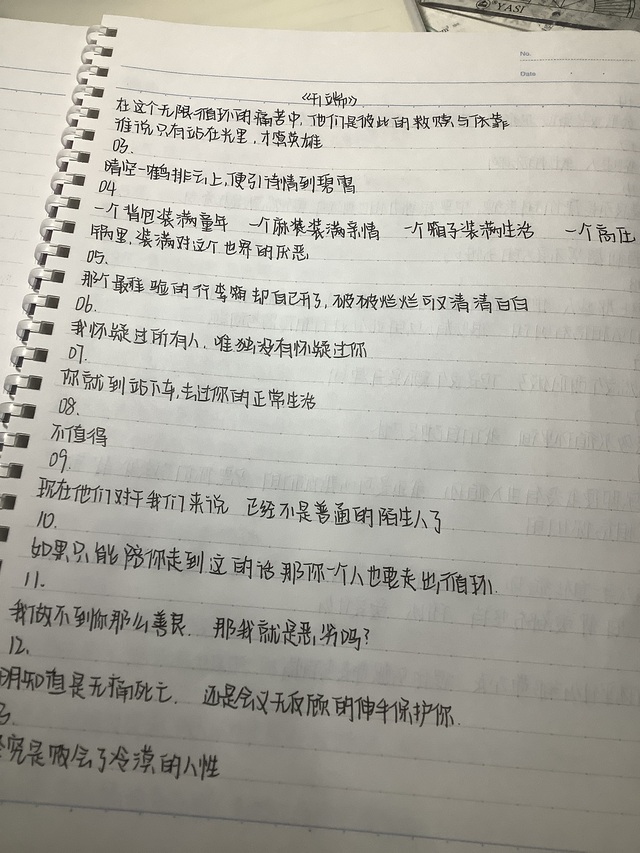 YASI
No.
Date
《开端》
在这个无限循环的痛苦中,他们是彼此的救赎与依靠
谁说只有站在光里,才算英雄
03.
晴空一鹤排云上,便引诗情到碧霄
04
一个背包装满童年 一个麻袋装满亲情 一个箱子装满生活 一个高压
锅里,装满对这个世界的厌恶
05.
那个最难验的行李箱却自己开了,破破烂烂可又清清白白
06.
我怀疑过所有人,唯独没有怀疑过你
07.
你就到站下车,去过你的正常生活
08.
不值得
09.
现在他们对于我们来说 已经不是普通的陌生人了
10.
如果只能陪你走到这的话 那你一个人也要走出循环.
11.
我做不到你那么善良. 那我就是恶劣吗?
12.
明知道是无痛死亡. 还是会义无反顾的伸手保护你.
3.
究是败给了冷漠的人性